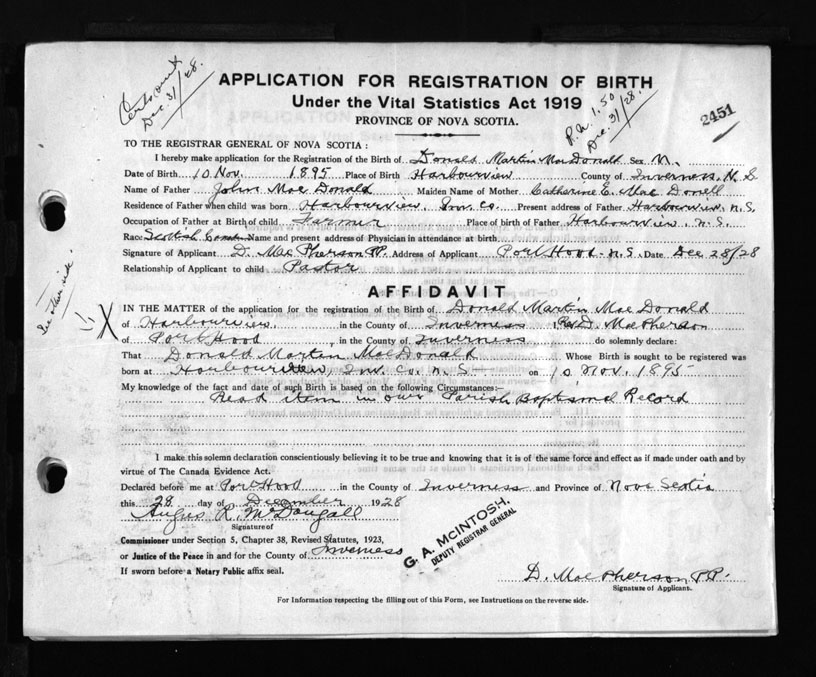 Cert sent
Dec 31/28.
APPLICATION FOR REGISTRATION OF BIRTH
Under the Vital Statistics Act 1919
PROVINCE OF NOVA SCOTIA.
P.a. 1.50
Dec. 31/28.
2451
TO THE REGISTRAR GENERAL OF NOVA SCOTIA :
I hereby make application for the Registration of the Birth of Donald Martin MacDonald Sex M.
Date of Birth 10 Nov. 1895 Place of Birth Harbourview County of Inverness, N.S
Name of Father John MacDonald Maiden Name of Mother Catherine E. MacDonell
Residence of Father when child was born Harbourview, Inv. Co. Present address of Father Harbourview. N.S.
Occupation of Father at Birth of child Farmer Place of birth of Father Harbourview. N.S.
Race Scottish Name and present address of Physician in attendance at birth
Signature of Applicant D. MacPherson PP. Address of Applicant Port Hood. N.S. Date Dec 28/28
Relationship of Applicant to child Pastor
See other side
AFFIDAVIT
IN THE MATTER of the application for the registration of the Birth of Donald Martin MacDonald
X of Harbourview. in the County of Inverness I, Rev D. MacPherson
of Port Hood, in the County of Inverness do solemnly declare:
That Donald Martin MacDonald Whose Birth is sought to be registered was
born at Harbourview, Inv. Co. N.S. on 10 Nov. 1895
My knowledge of the fact and date of such Birth is based on the following Circumstances:–
Read item in our Parish Baptismal Record
I make this solemn declaration conscientiously believing it to be true and knowing that it is of the same force and effect as if made under oath and by
virtue of The Canada Evidence Act.
Declared before me at Port Hood in the County of Inverness and Province of Nova Scotia
this 28 day of December 1928
Angus R. McDougall
Signature of
Commissioner under Section 5, Chapter 38, Revised Statutes, 1923,
or Justice of the Peace in and for the County of Inverness
If sworn before a Notary Public affix seal.
G. A. McINTOSH,
DEPUTY REGISTRAR GENERAL
D. MacPherson, PP.
Signature of Applicant.
For Information respecting the filling out of this Form, see Instructions on the reverse side.